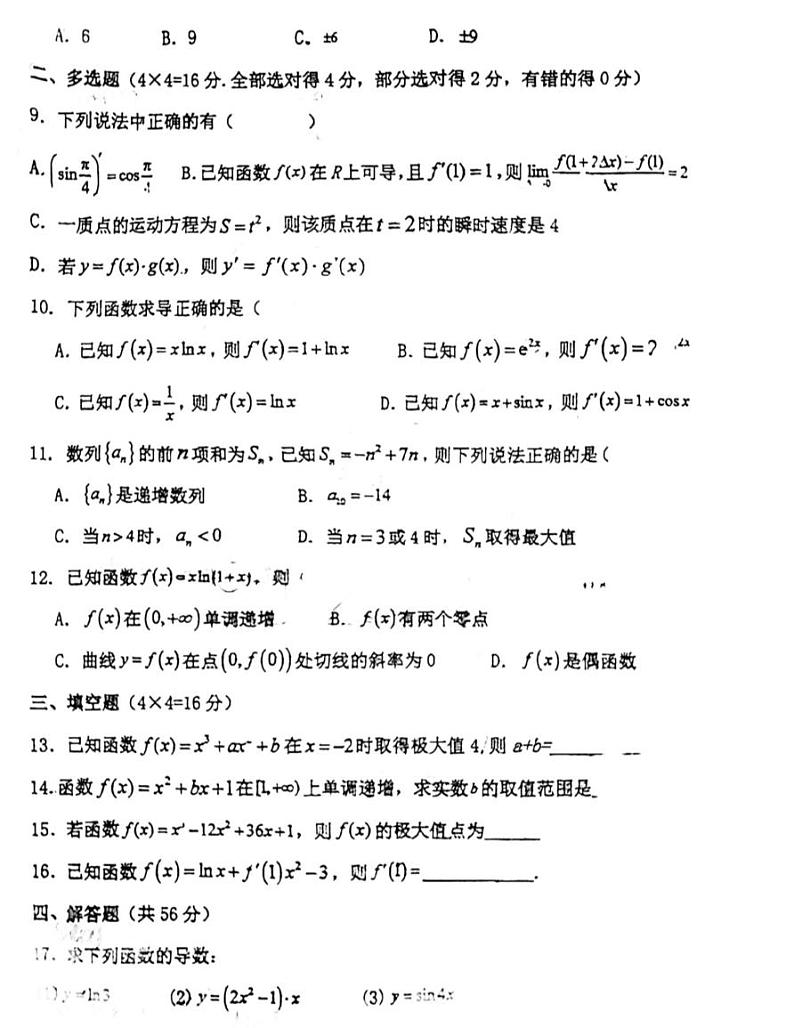 A. 6 B. 9 C. ±6 D. ±9
二、多选题（4×4=16分.全部选对得4分，部分选对得2分，有错的得0分）
9. 下列说法中正确的有（ ）
A. (sin π/4)′ = cos π/4 B. 已知函数f(x)在R上可导,且f′(1)=1,则lim f(1+2Δx)−f(1)/Δx=2
C. 一质点的运动方程为S=t²，则该质点在t=2时的瞬时速度是4
D. 若y=f(x)·g(x)，则y′= f′(x)·g′(x)
10. 下列函数求导正确的是（
A. 已知f(x)=xlnx，则f′(x)=1+lnx B. 已知f(x)=e^{2x}，则f′(x)=2
C. 已知f(x)=1/x，则f′(x)=lnx D. 已知f(x)=x+sinx，则f′(x)=1+cosx
11. 数列{aₙ}的前n项和为Sₙ，已知Sₙ=−n²+7n，则下列说法正确的是（
A. {aₙ}是递增数列 B. a₁₀=−14
C. 当n>4时，aₙ<0 D. 当n=3或4时，Sₙ取得最大值
12. 已知函数f(x)=xln(1+x)，则（
A. f(x)在(0,+∞)单调递增 B. f(x)有两个零点
C. 曲线y=f(x)在点(0,f(0))处切线的斜率为0 D. f(x)是偶函数
三、填空题（4×4=16分）
13. 已知函数f(x)=x³+ax +b在x=−2时取得极大值4,则a+b=____
14. 函数f(x)=x²+bx+1在[1,+∞)上单调递增，求实数b的取值范围是_
15. 若函数f(x)=x³−12x²+36x+1，则f(x)的极大值点为____
16. 已知函数f(x)=lnx+f′(1)x²−3，则f′(1)=________.
四、解答题（共56分）
17. 求下列函数的导数：
(1) y=ln3 (2) y=(2x²−1)·x (3) y=sin4x